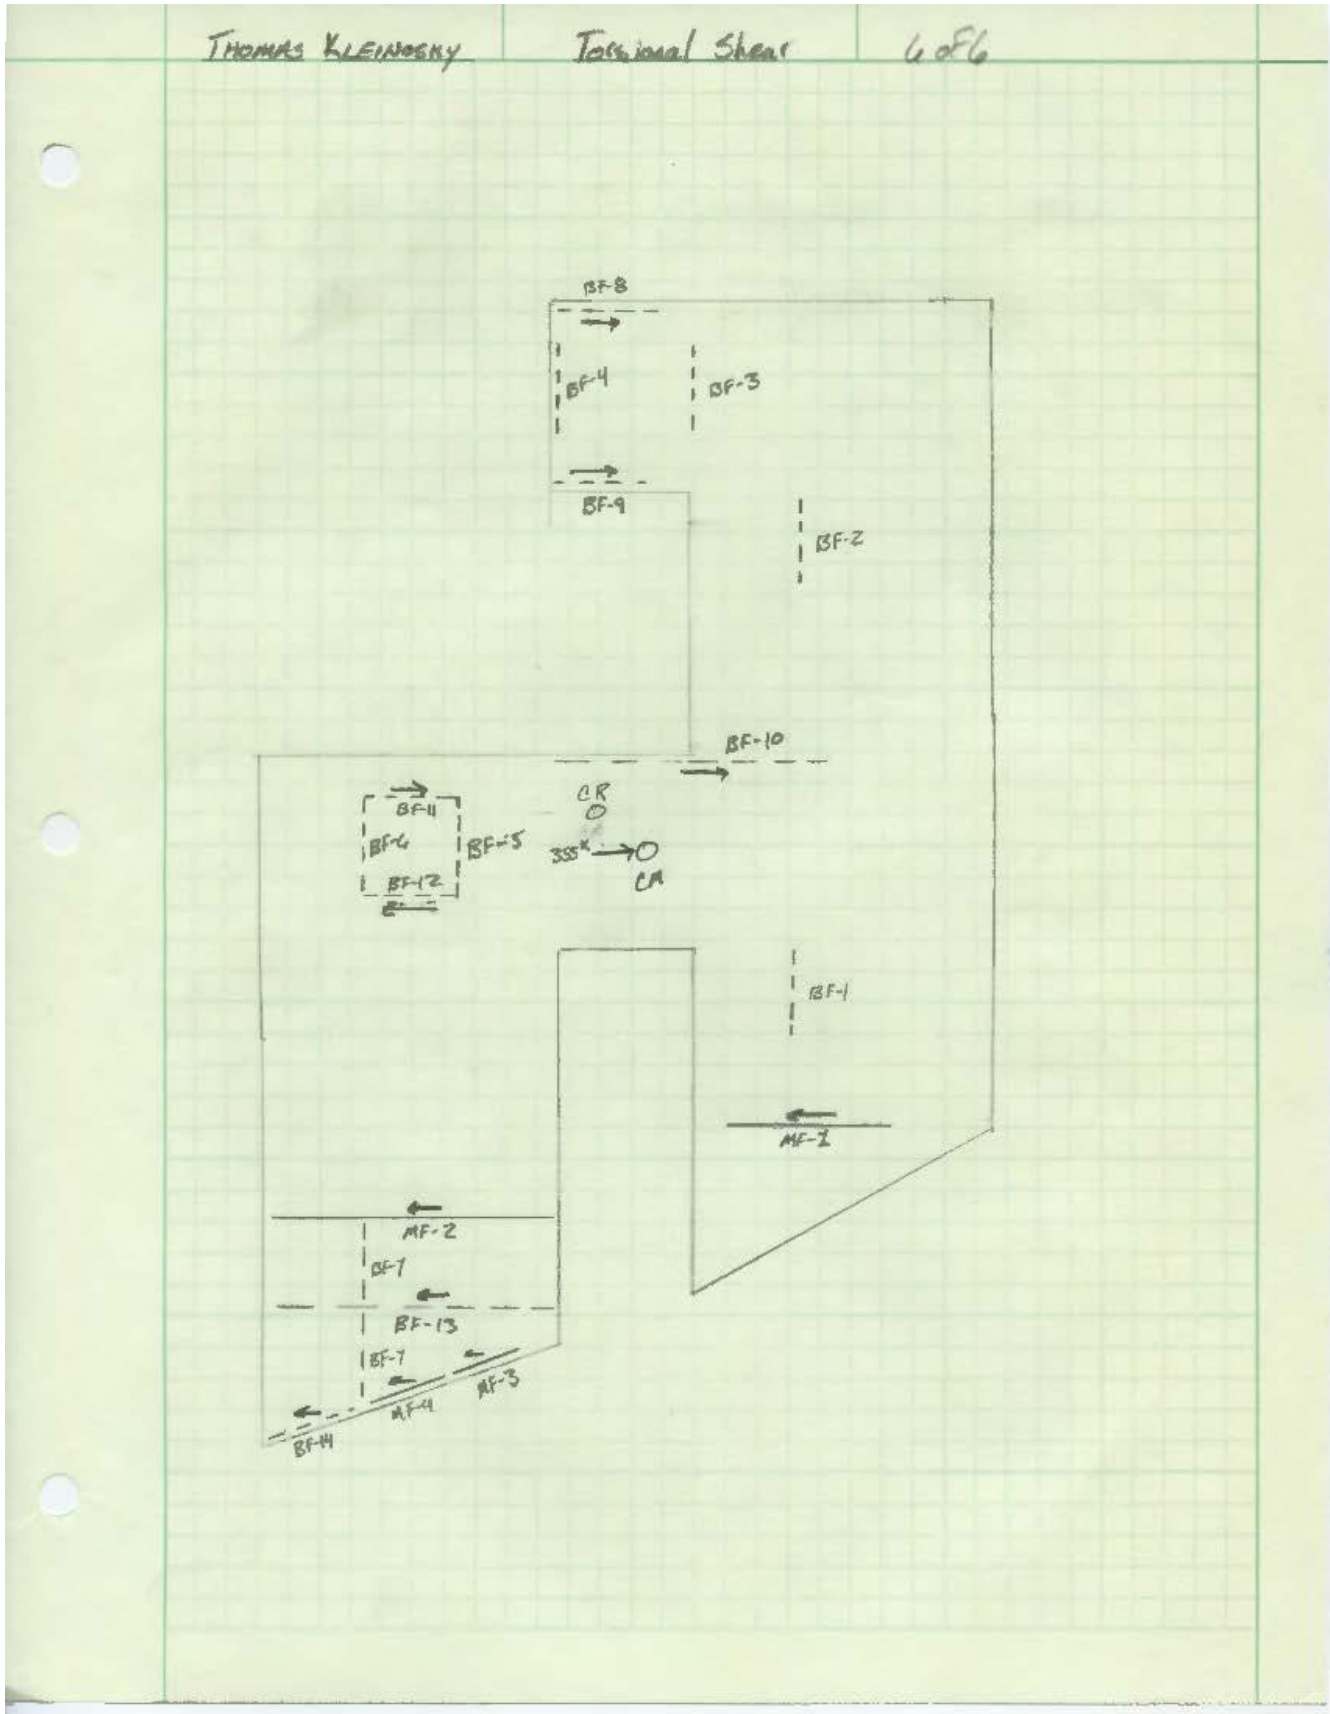 THOMAS KLEINOSKY Torsional Shear 6 of 6
BF-8
BF-4 BF-3
BF-9
BF-2
BF-10
CR
BF-11
BF-6 BF-5
355ᴷ
BF-12
CM
BF-1
MF-1
MF-2
BF-7
BF-13
BF-7
MF-3
MF-4
BF-14